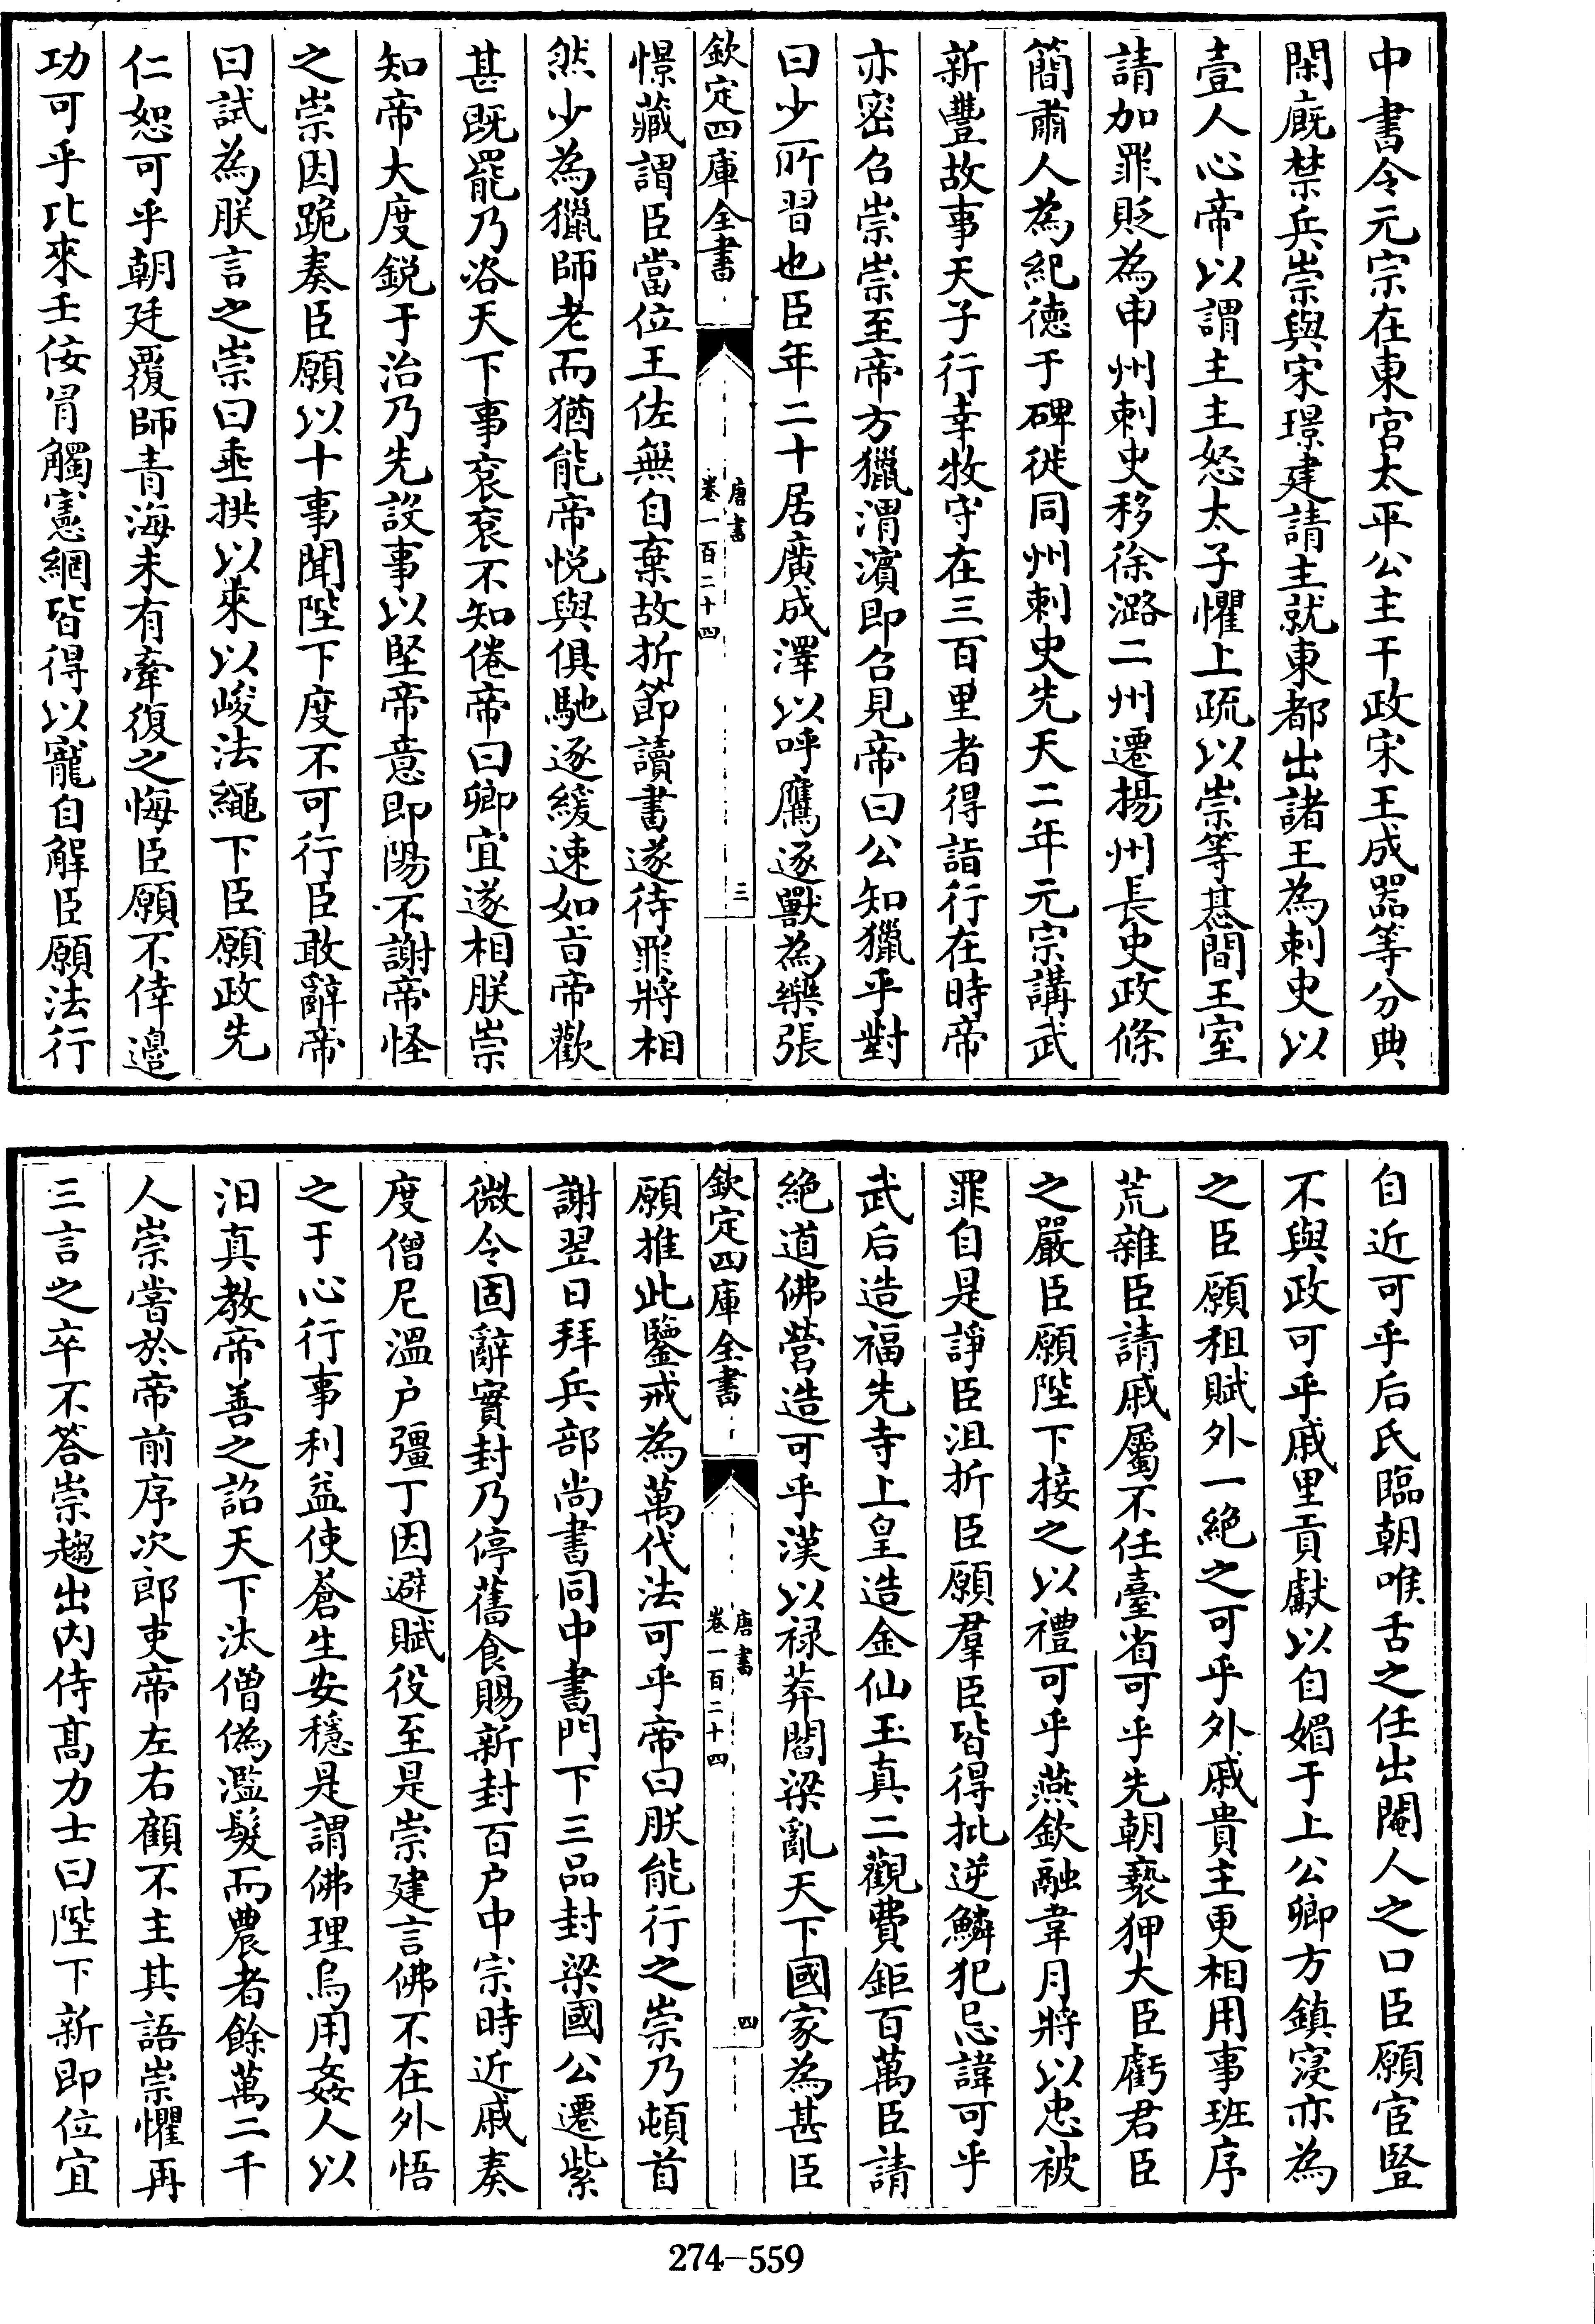 中書令元宗在東宮太平公主干政宋王成器等分典
閑廐禁兵崇與宋璟建請主就東都出諸王為刺史以
壹人心帝以謂主主怒太子懼上疏以崇等惎間王室
請加罪貶為申州刺史移徐潞二州遷揚州長史政條
簡肅人為紀德于碑徙同州刺史先天二年元宗講武
新豐故事天子行幸牧守在三百里者得詣行在時帝
亦密召崇崇至帝方獵渭濱即召見帝曰公知獵乎對
曰少所習也臣年二十居廣成澤以呼鷹逐獸為樂張
欽定四庫全書
唐書
卷一百二十四
三
憬藏謂臣當位王佐無自棄故折節讀書遂待罪將相
然少為獵師老而猶能帝悦與俱馳逐緩速如㫖帝歡
甚既罷乃咨天下事衮衮不知倦帝曰卿宜遂相朕崇
知帝大度鋭于治乃先設事以堅帝意即陽不謝帝怪
之崇因跪奏臣願以十事聞陛下度不可行臣敢辭帝
曰試為朕言之崇曰垂拱以來以峻法繩下臣願政先
仁恕可乎朝廷覆師青海未有牽復之悔臣願不倖邉
功可乎比來壬佞冐觸憲網皆得以寵自解臣願法行
自近可乎后氏臨朝喉舌之任出閹人之口臣願宦豎
不與政可乎戚里貢獻以自媚于上公卿方鎮寖亦為
之臣願租賦外一絶之可乎外戚貴主更相用事班序
荒雜臣請戚屬不任臺省可乎先朝褻狎大臣虧君臣
之嚴臣願陛下接之以禮可乎燕欽融韋月將以忠被
罪自是諍臣沮折臣願羣臣皆得批逆鱗犯忌諱可乎
武后造福先寺上皇造金仙玉真二觀費鉅百萬臣請
絶道佛營造可乎漢以禄莽閻梁亂天下國家為甚臣
欽定四庫全書
唐書
卷一百二十四
四
願推此鑒戒為萬代法可乎帝曰朕能行之崇乃頓首
謝翌日拜兵部尚書同中書門下三品封梁國公遷紫
微令固辭實封乃停舊食賜新封百户中宗時近戚奏
度僧尼溫户彊丁因避賦役至是崇建言佛不在外悟
之于心行事利益使蒼生安穩是謂佛理烏用姦人以
汨真教帝善之詔天下汰僧偽濫髮而農者餘萬二千
人崇嘗於帝前序次郎吏帝左右顧不主其語崇懼再
三言之卒不答崇趨出内侍髙力士曰陛下新即位宜
274-559